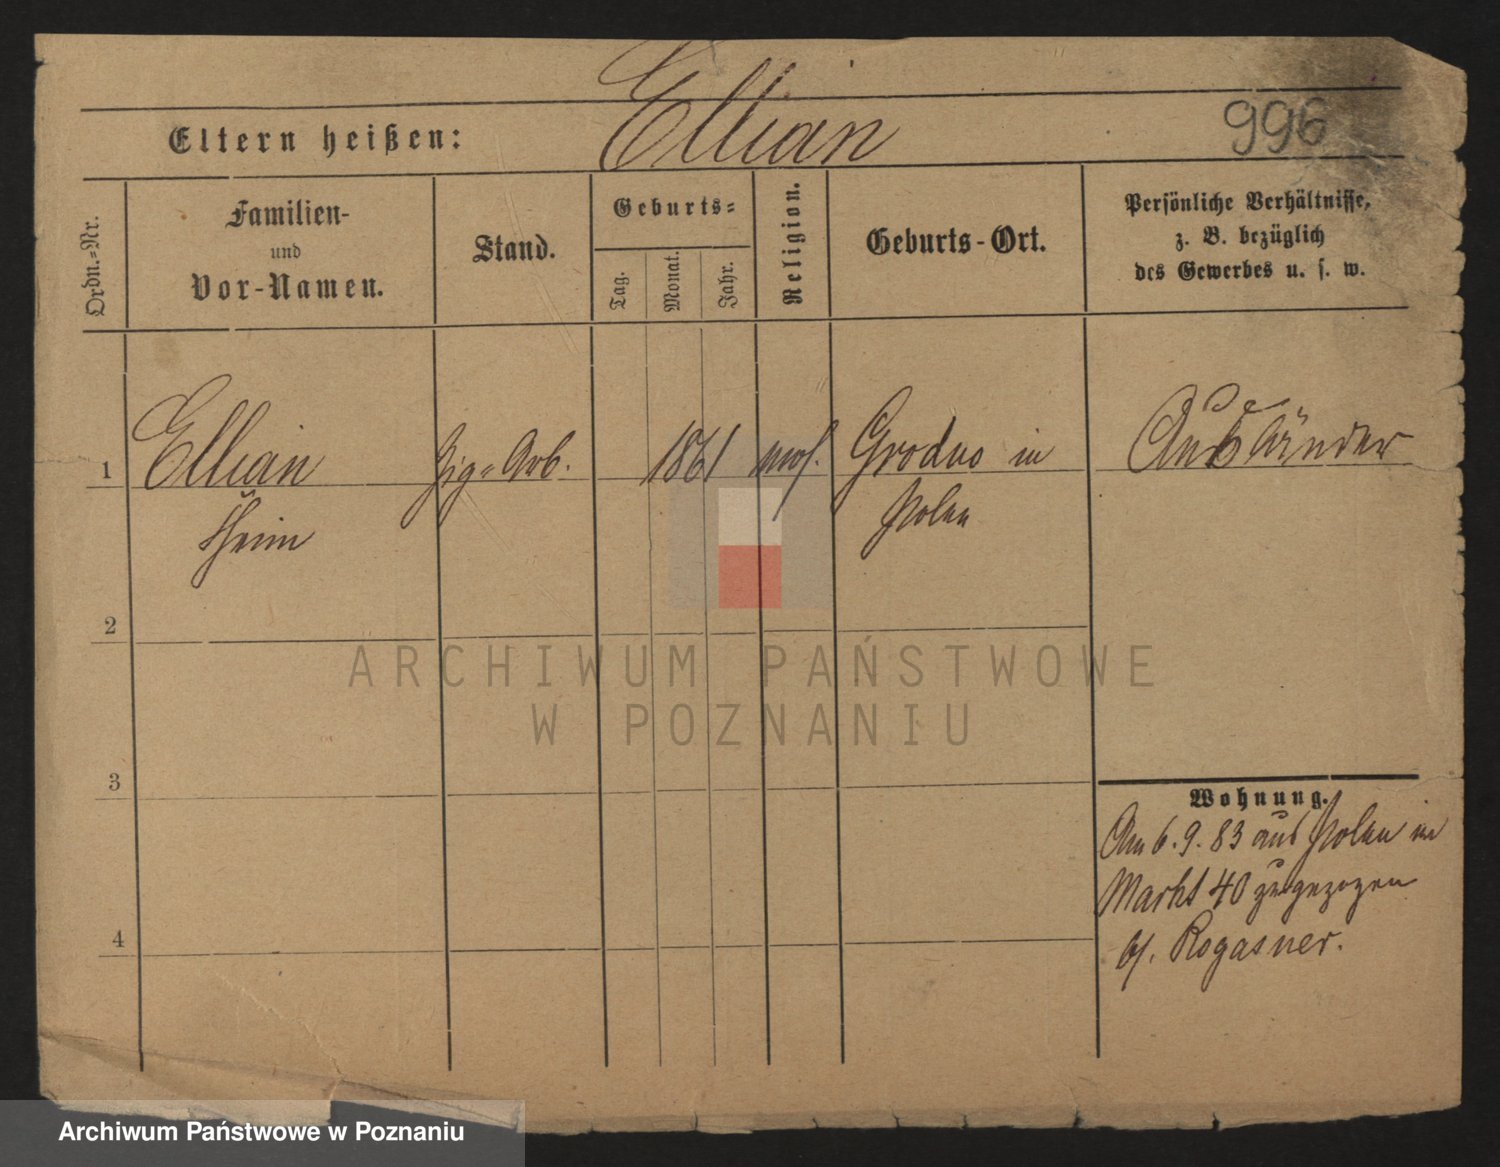 Ellian
996
Eltern heißen:
Ordn.-Nr.
Familien-
und
Vor-Namen.
Stand.
Geburts-
Tag.
Monat.
Jahr.
Religion.
Geburts-Ort.
Persönliche Verhältnisse,
z. B. bezüglich
des Gewerbes u. s. w.
1
Ellian
Zig-Arb.
1861
mos.
Grodno in
Polen
Ausländer
2
3
4
ARCHIWUM PAŃSTWOWE
W POZNANIU
Wohnung.
Am 6.9.83 aus Polen in
Markt 40 zugezogen
b/. Rogasner.
Archiwum Państwowe w Poznaniu